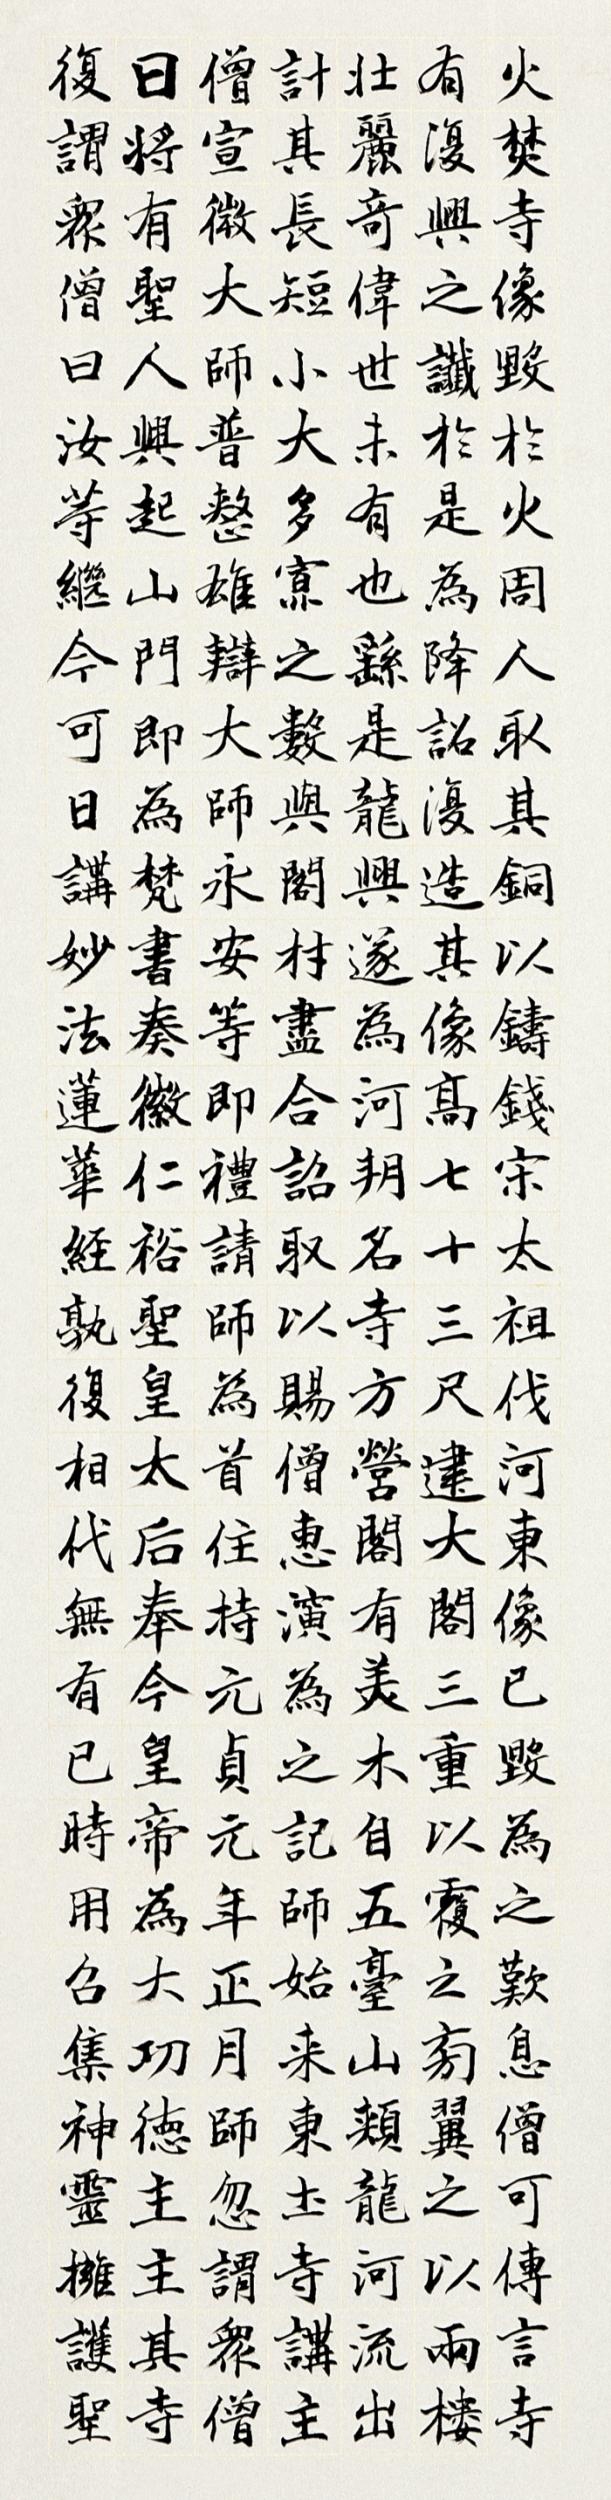 火焚寺像毀於火周人取其銅以鑄錢宋太祖伐河東像已毀為之歎息僧可傳言寺
有復興之讖於是為降詔復造其像高七十三尺建大閣三重以覆之旁翼之以兩樓
壯麗奇偉世未有也繇是龍興遂為河朔名寺方營閣有美木自五臺山頰龍河流出
計其長短小大多寡之數與閣材盡合詔取以賜僧惠演為之記師始来東土寺講主
僧宣微大師普整雄辯大師永安等即禮請師為首住持元貞元年正月師忽謂眾僧
曰將有聖人興起山門即為梵書奏徽仁裕聖皇太后奉今皇帝為大功德主主其寺
復謂眾僧曰汝等繼今可日講妙法蓮華經孰復相代無有已時用召集神靈擁護聖